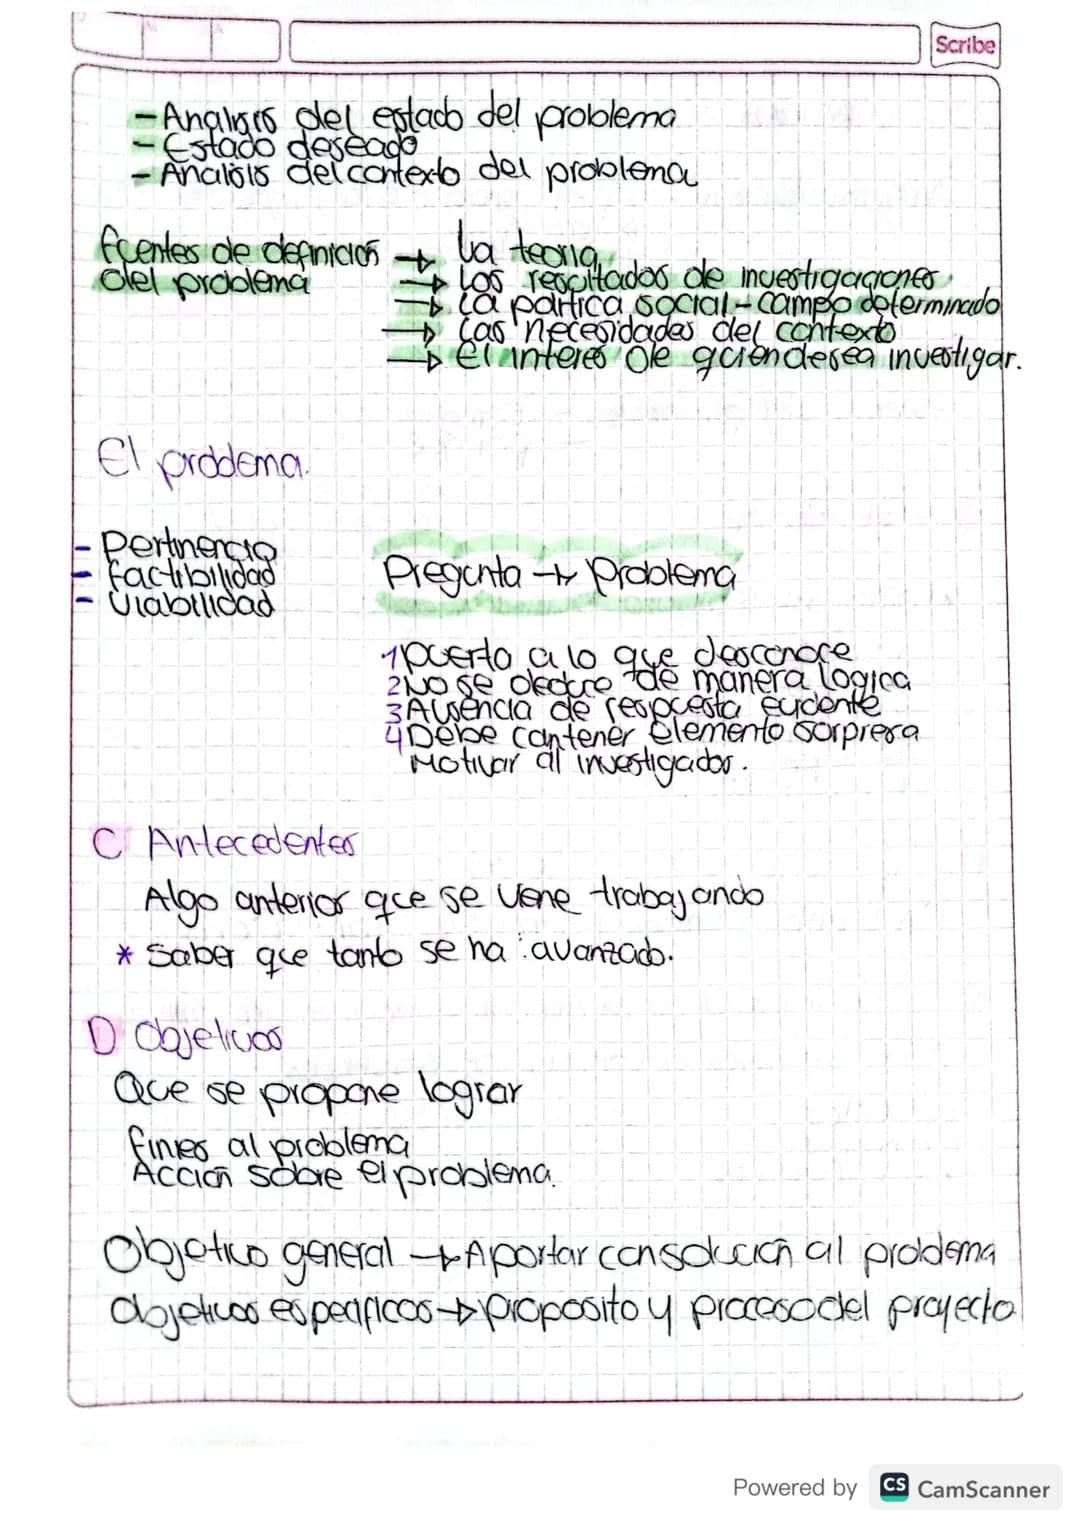 Scribe
- Analisis del estado del problema
- Estado deseado
- Analisis del contexto del problema
fuentes de definición → La teoria
del problema → Los resultados de investigaciones.
→ La partica social - campo determinado
→ Las necesidades del contexto
→ El interes de quien desea investigar.
El problema.
- Pertinencia
- factibilidad
- Viabilidad
Pregunta → Problema
1 puerta a lo que desconoce
2 No se deduce de manera logica
3 Ausencia de respuesta evidente
4 Debe contener elemento sorpresa
Motivar al investigador.
C Antecedentes
Algo anterior que se viene trabajando
* Saber que tanto se ha avanzado.
D Objetivos
Que se propone lograr
fines al problema
Acción sobre el problema.
Objetivo general → Aportar con solución al problema
Objetivos especificos → proposito y proceso del proyecto
Powered by CS CamScanner